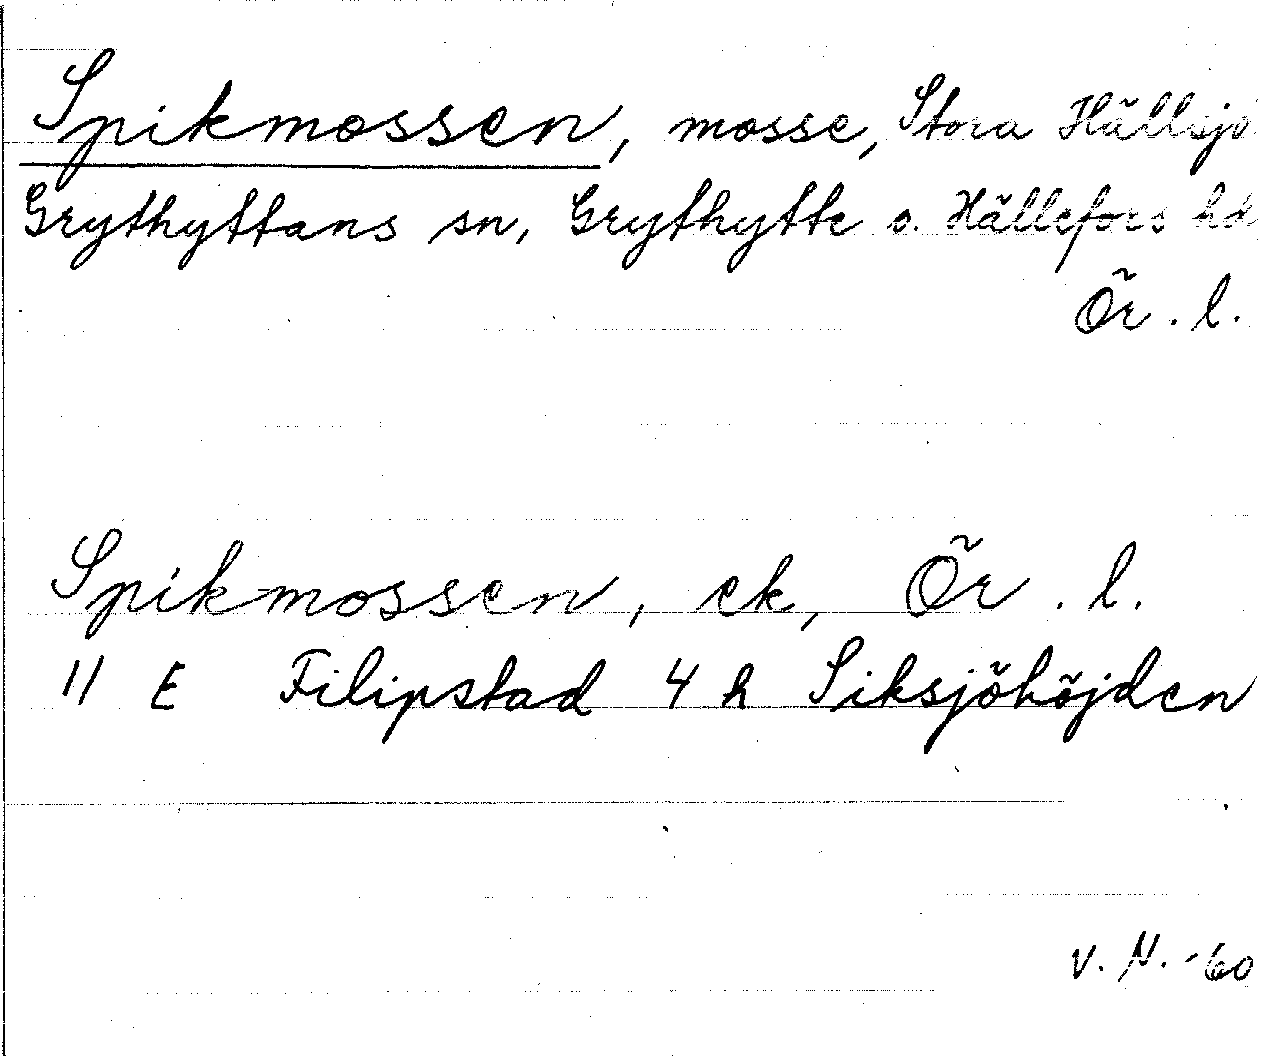 Spikmossen, mosse, Stora Hällsjö
Grythyttans sn, Grythytte o. Hällefors hd
Ör. l.
Spikmossen, ek, Ör. l.
11 E Filipstad 4 h Siksjöhöjden
V. N. -60